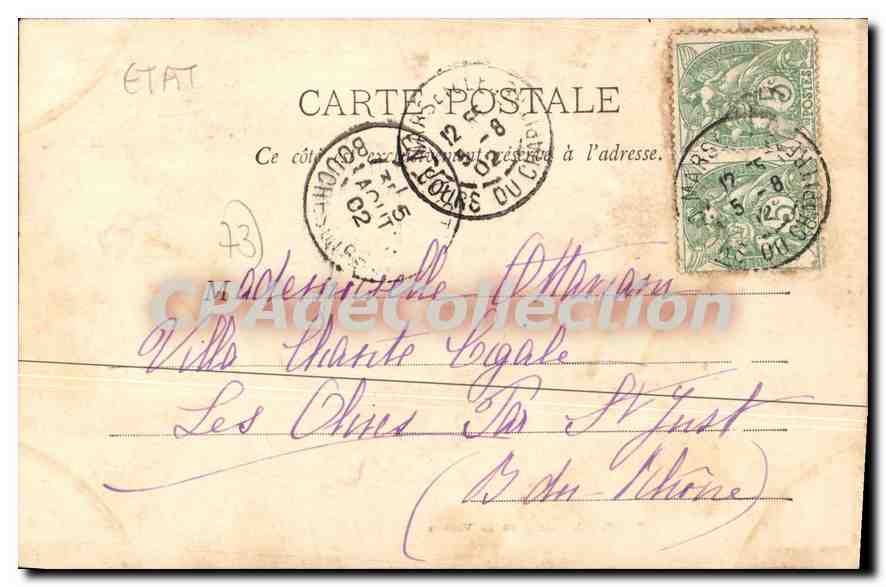 ETAT
CARTE POSTALE
Ce côté est exclusivement réservé à l'adresse.
MARSEILLE
12
5 -8
02
COURS DU CHAPITRE
BOUCHES
5
AOUT
02
POSTES
5c
MARSEILLE
12
5 -8
COURS DU CHAPITRE
5c
73
Mademoiselle
CPAdeCollection.com
Villa Chante Cigale
Les Olives Par St Just
(B du Rhône)